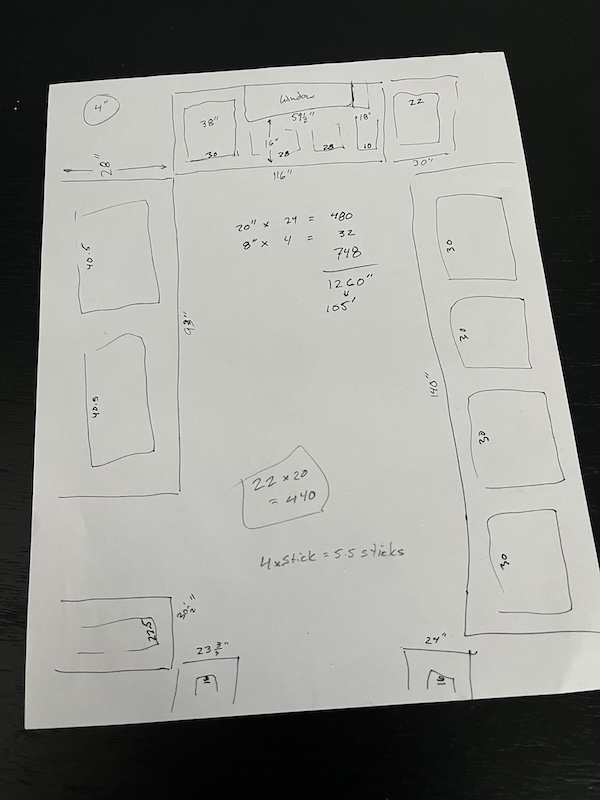 4"
Window
38"
59 1/2"
18"
22
16"
30
28
28
10
28"
116"
20"
20" x 24 = 480
8" x 4 = 32
748
1260"
105'
40.5
30
93"
30
140"
40.5
30
22 x 20
= 440
30
4 x Stick = 5.5 sticks
30 1/2"
22.5
24"
16
16